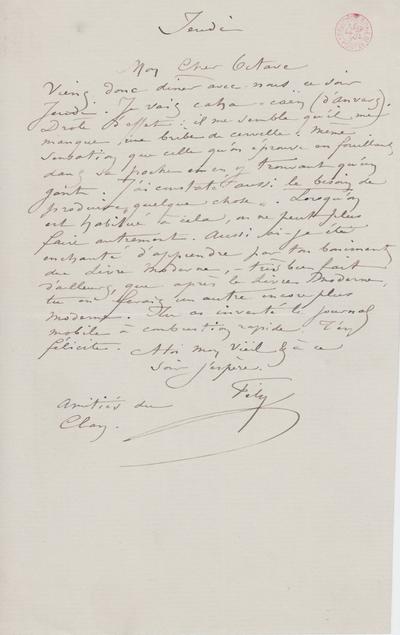 Jeudi
Mon Cher Octave
Viens donc diner avec nous ce soir
Jeudi. Je vais caha-caën (d'Anvers).
Drole d'effet : il me semble qu'il me
manque une bribe de cervelle. Même
sensation que celle qu'on éprouve en fouillant
dans sa poche en n'y trouvant qu'un
gant. J'ai constaté aussi le besoin de
produire quelque chose. Lorsqu'on
est habitué à cela, on ne peut plus
faire autrement. Aussi ai-je été
enchanté d'apprendre par ton boniment
du Livre Moderne, - très bien fait
d'ailleurs, que après le Livre Moderne,
tu en ferais un autre encore plus
moderne. Tu as inventé le journal
mobile à combustion rapide. T'en
félicite. A toi mon vieil & à ce
soir j'espère.
Fély
Amitiés du
Clan.